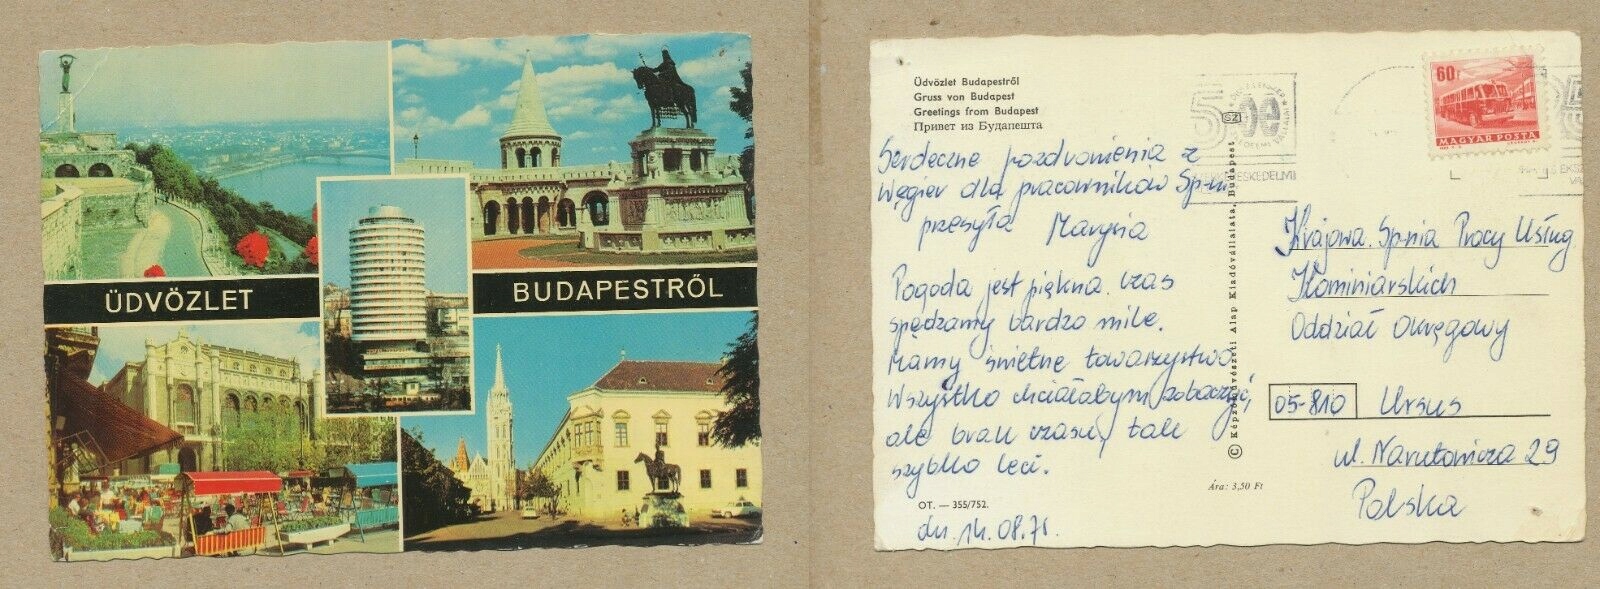 ÜDVÖZLET BUDAPESTRŐL
Üdvözlet Budapestről
Gruss von Budapest
Greetings from Budapest
Привет из Будапешта
60f
MAGYAR POSTA
Serdeczne pozdrowienia z
Węgier dla pracowników Sp-ni
przesyła Marysia
Pogoda jest piękna czas
spędzamy bardzo mile.
Mamy świetne towarzystwo
Wszystko chciałabym zobaczyć,
ale brak czasu, tak
szybko leci.
OT. — 355/752.
dn. 14.08.71.
© Képzőművészeti Alap Kiadóvállalata, Budapest
Ára: 3,50 Ft
Krajowa Sp-nia Pracy Usług
Kominiarskich
Oddział Okręgowy
05-810 Ursus
ul. Narutowicza 29
Polska